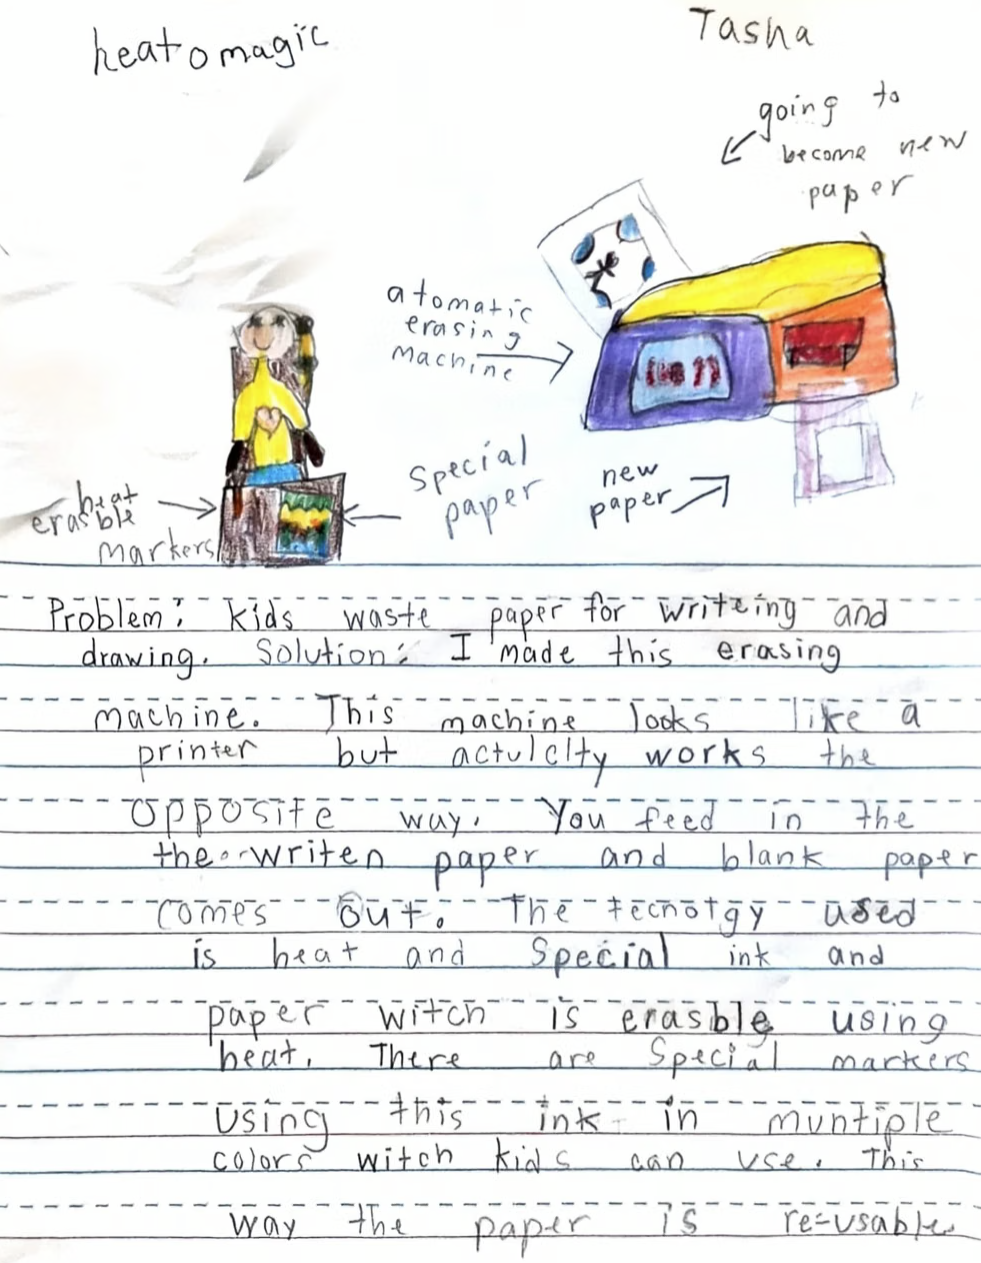 heatomagic
Tasha
going to
become new
paper
atomatic
erasing
machine
Special
paper
new
paper
heat
erasible
markers
Problem: kids waste paper for writeing and
drawing. Solution: I made this erasing
machine. This machine looks like a
printer but actulclty works the
opposite way. You feed in the
the writen paper and blank paper
comes out. The tecnotgy used
is heat and Special ink and
paper witch is erasble using
heat. There are Special markers
using this ink in muntiple
colors witch kids can use. This
way the paper is re-usable